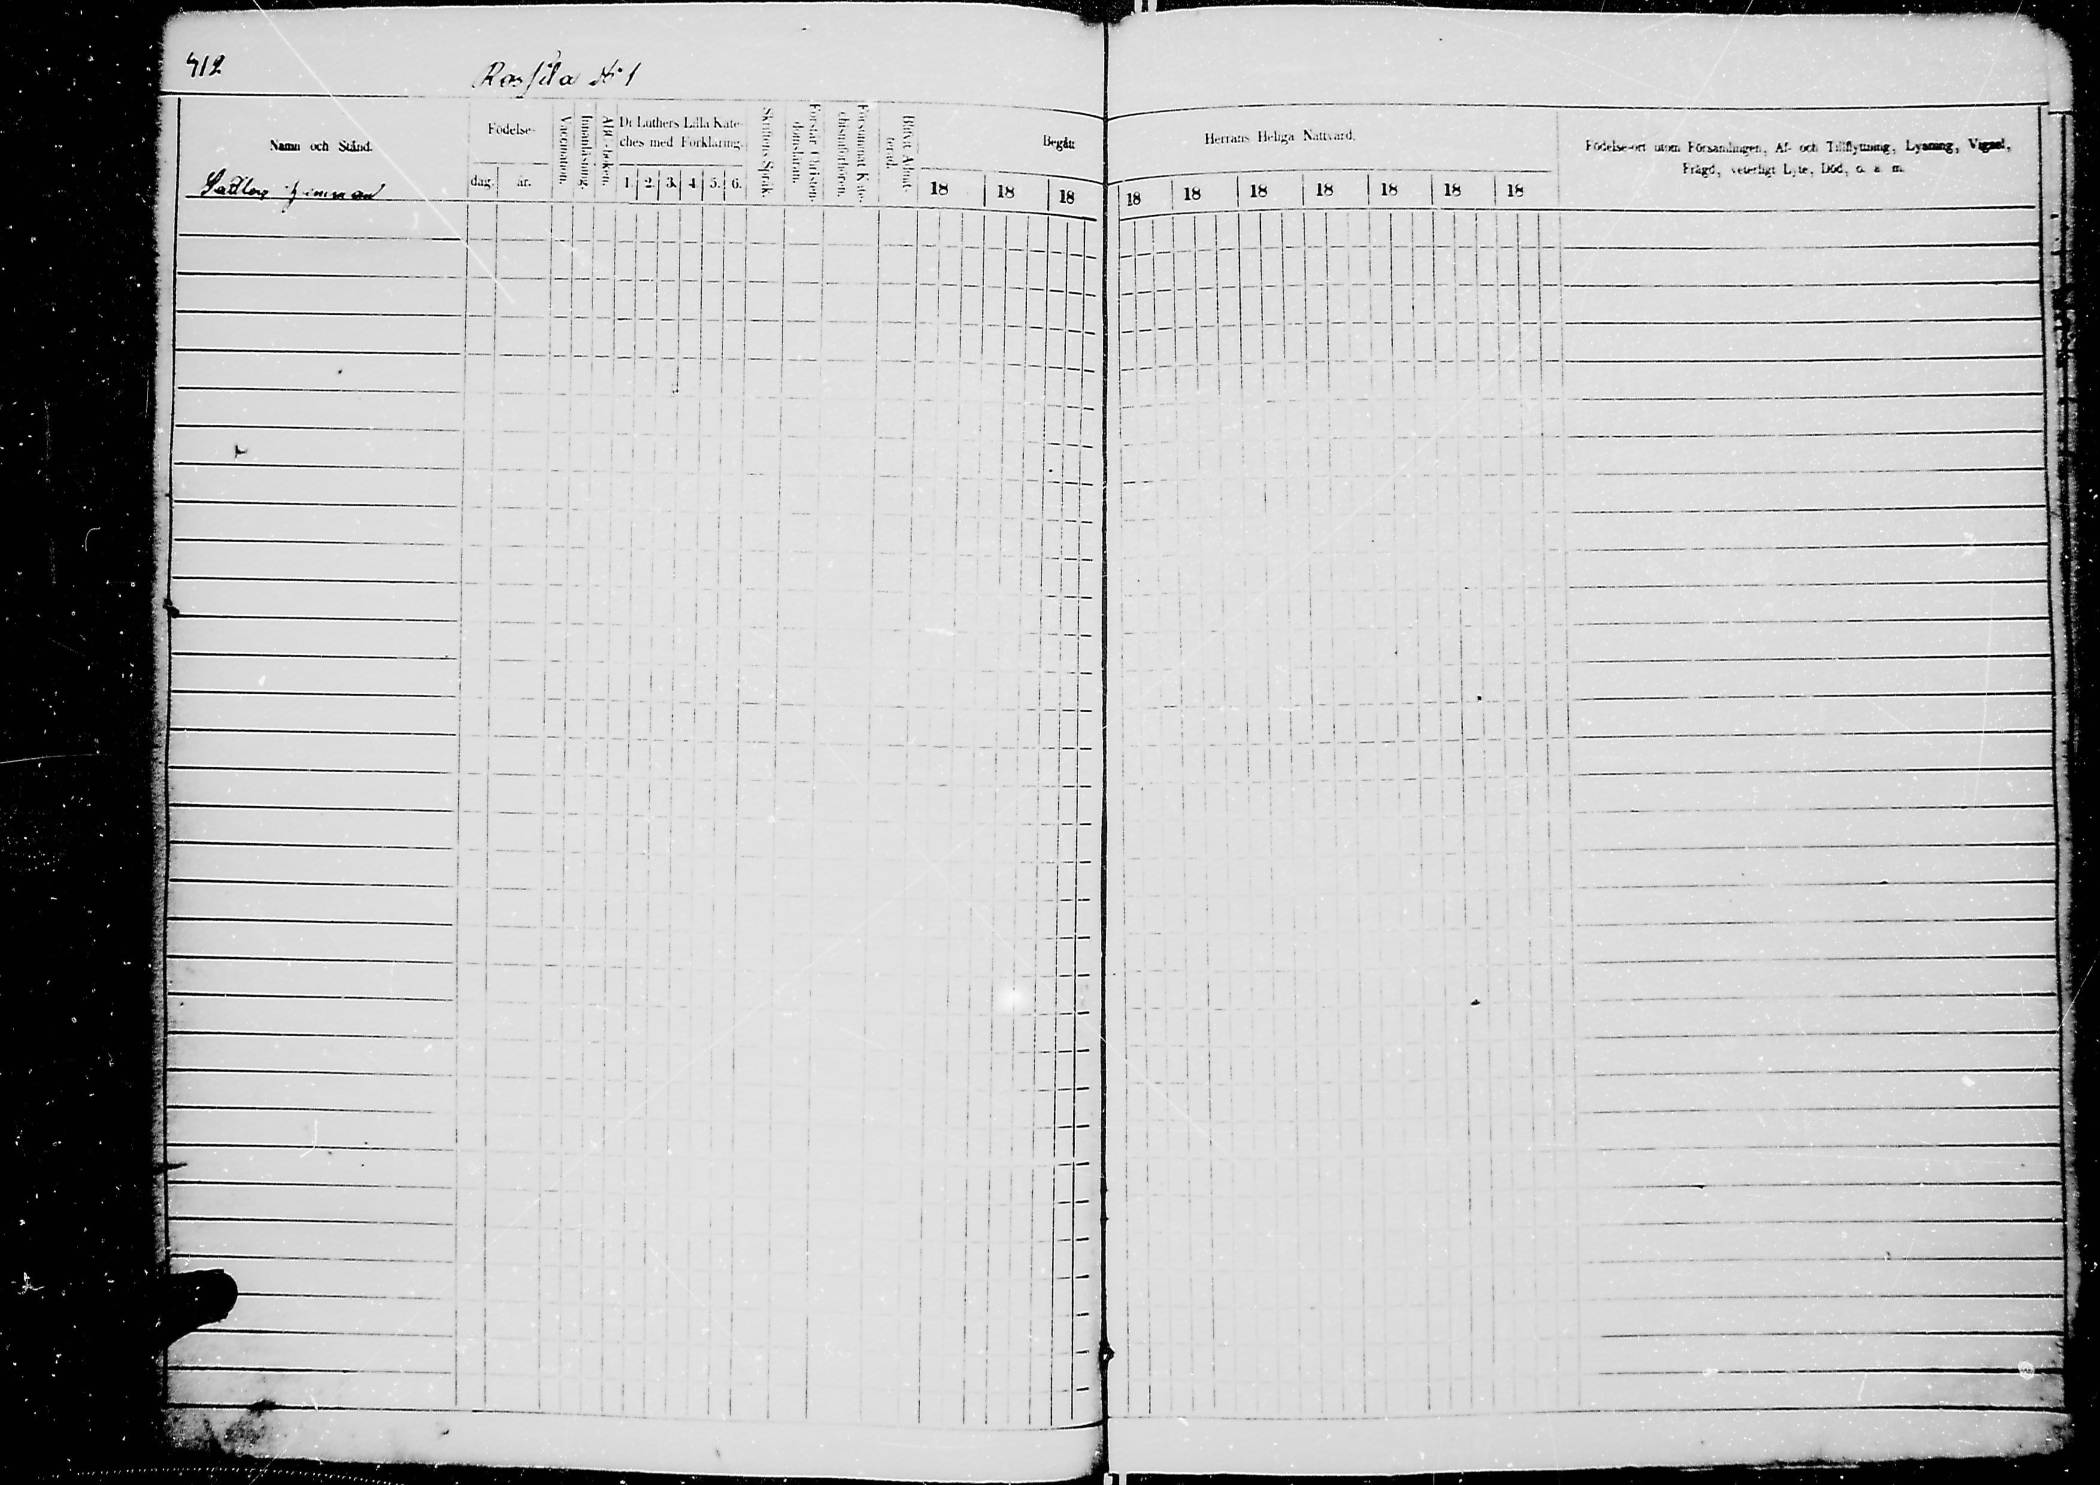 412
Rossila No 1
Namn och Stånd.
Födelse-
dag.
år.
Vaccination.
Innanläsning.
ABC-boken.
Dr Luthers Lilla Kate-
ches med Förklaring.
1. 2. 3. 4. 5. 6.
Skriftens Språk.
Förstår Christen-
domsläran.
Försummat Kate-
chismiförhören.
Blifvit Admit-
terad.
Begått
18 18 18
Herrans Heliga Nattvard.
18 18 18 18 18 18 18
Födelse-ort utom Församlingen, Af- och Tillflyttning, Lysning, Vigsel,
Frägd, veterligt Lyte, Död, o. s. m.